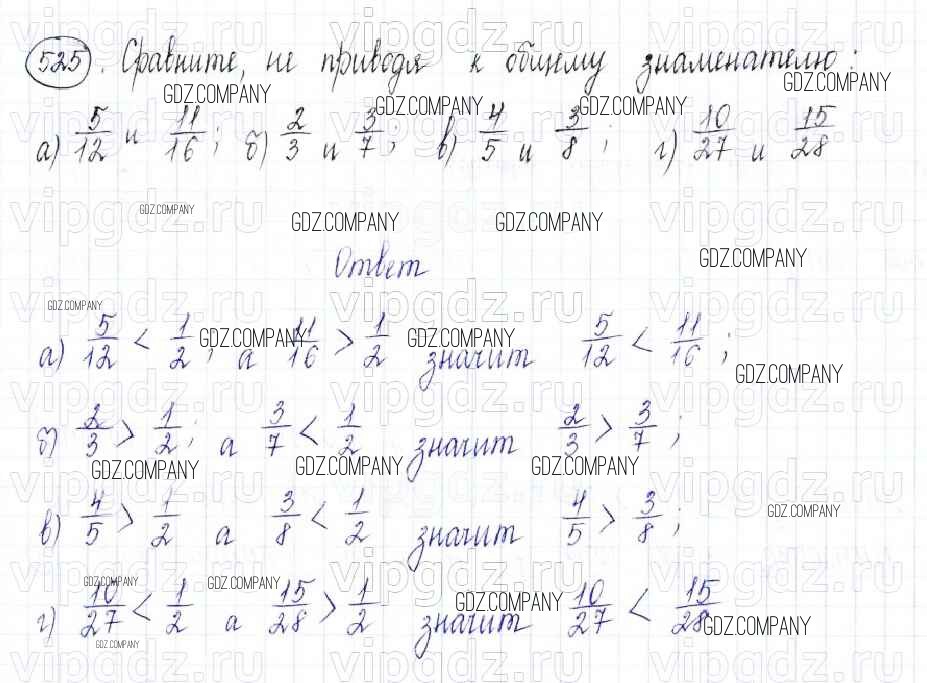 525. Сравните, не приводя к общему знаменателю:
а) 5/12 и 11/16; б) 2/3 и 3/7; в) 4/5 и 3/8; г) 10/27 и 15/28
Ответ
а) 5/12 < 1/2; а 11/16 > 1/2 значит 5/12 < 11/16;
б) 2/3 > 1/2; а 3/7 < 1/2 значит 2/3 > 3/7;
в) 4/5 > 1/2 а 3/8 < 1/2 значит 4/5 > 3/8;
г) 10/27 < 1/2 а 15/28 > 1/2 значит 10/27 < 15/28
vipgdz.ru
GDZ.COMPANY